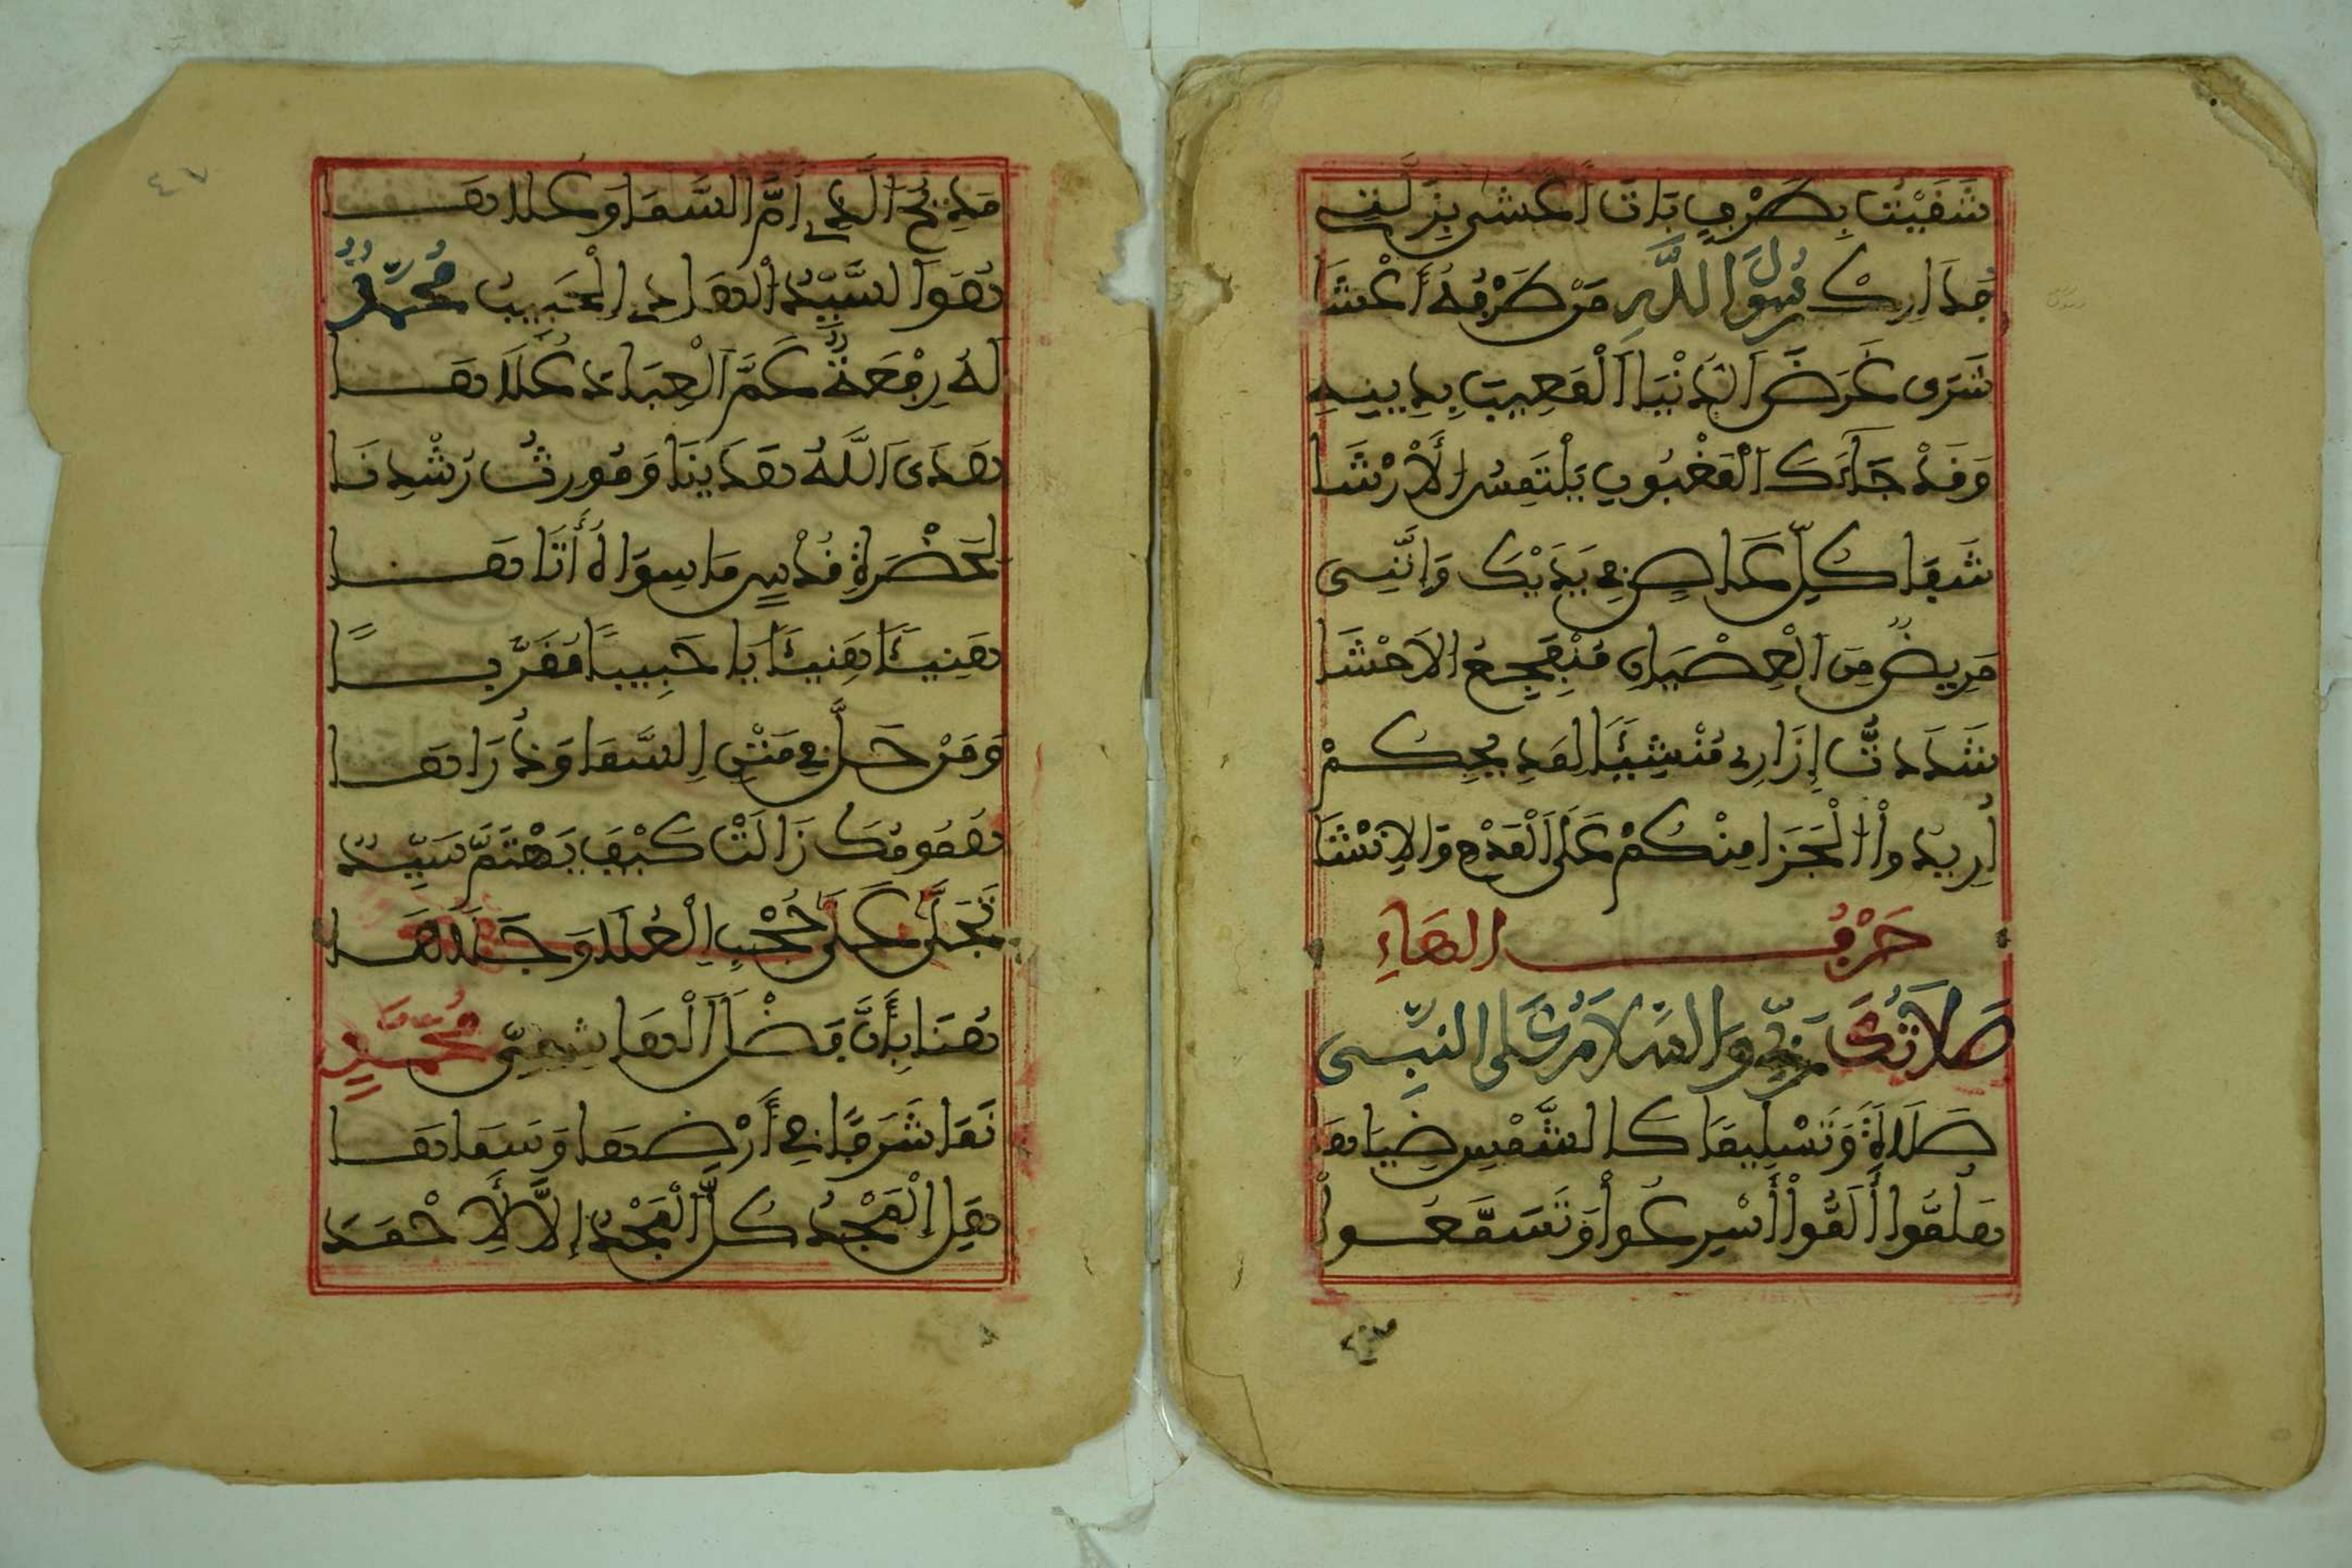 شَفَيْتُ بِطَرْفٍ بَاتَ أَعْشَى بِزَلَّتِي
فَدَارِكْ رَسُولَ اللَّهِ مَنْ طَرْفُهُ أَعْشَا
شَرَى عَرَضَ الدُّنْيَا الْمَعِيبَ بِدِينِهِ
وَقَدْ جَاءَكَ الْمَغْبُونُ يَلْتَمِسُ الْأَرْشَا
شِفَا كُلِّ عَاصٍ فِي يَدَيْكَ وَإِنَّنِي
مَرِيضٌ مِنَ الْعِصْيَانِ مُنْفَجِعُ الاَحْشَا
شَدَدتُّ إِزَارِي مُنْشِئًا لِمَدِيحِكُمْ
أُرِيدُ الْجَزَا مِنْكُمْ عَلَى الْمَدْحِ وَالاِنْشَا
حَرْفُ الهَاءِ
صَلَاتُكَ رَبِّي وَالسَّلَامُ عَلَى النَّبِي
صَلَاةً وَتَسْلِيمًا كَالشَّمْسِ ضِيَاهَا
هَلُمُّوا أَلَمُّوا أَسْرِعُوا وَتَسَمَّعُوا
مَدِيحَ الَّذِي أَمَّ السَّمَا وَعَلَاهَا
هُوَ السَّيِّدُ الْهَادِي الْحَبِيبُ مُحَمَّدٌ
لَهُ رِفْعَةٌ عَمَّ الْعِبَادَ عُلَاهَا
هَدَى اللَّهُ هَادِينَا وَمُورِثُ رُشْدِنَا
لِحَضْرَةِ قُدْسٍ مَا سِوَاهُ أَتَاهَا
هَنِيئًا هَنِيئًا يَا حَبِيبًا مُقَرَّبًا
وَمَنْ حَلَّ فِي مَتْنِ السَّمَا وَذُرَاهَا
هُمُومُكَ زَالَتْ كَيْفَ يَهْتَمُّ سَيِّدٌ
تَجَلَّى عَلَى حُجْبِ الْعُلَا وَجَلَاهَا
هُنَا بَانَ فَضْلُ الْهَاشِمِيِّ مُحَمَّدٍ
نَمَا شَرَفًا فِي أَرْضِهَا وَسَمَاهَا
هَلِ الْمَجْدُ كُلُّ الْمَجْدِ إِلَّا لِأَحْمَدَ
٤٧